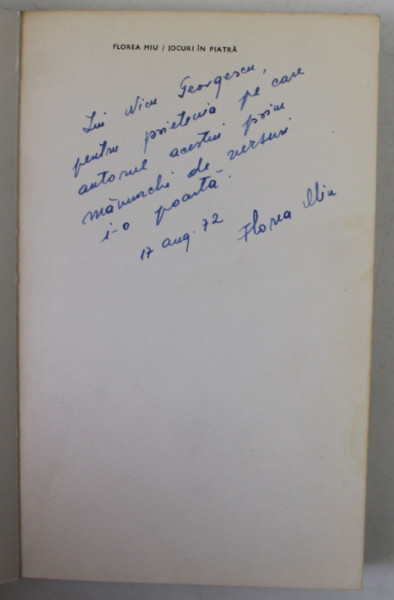 FLOREA MIU / JOCURI ÎN PIATRĂ
Lui Nicu Georgescu,
pentru prietenia pe care
autorul acestui prim
mănunchi de versuri
i-o poartă.
17 aug. 72
Florea Miu